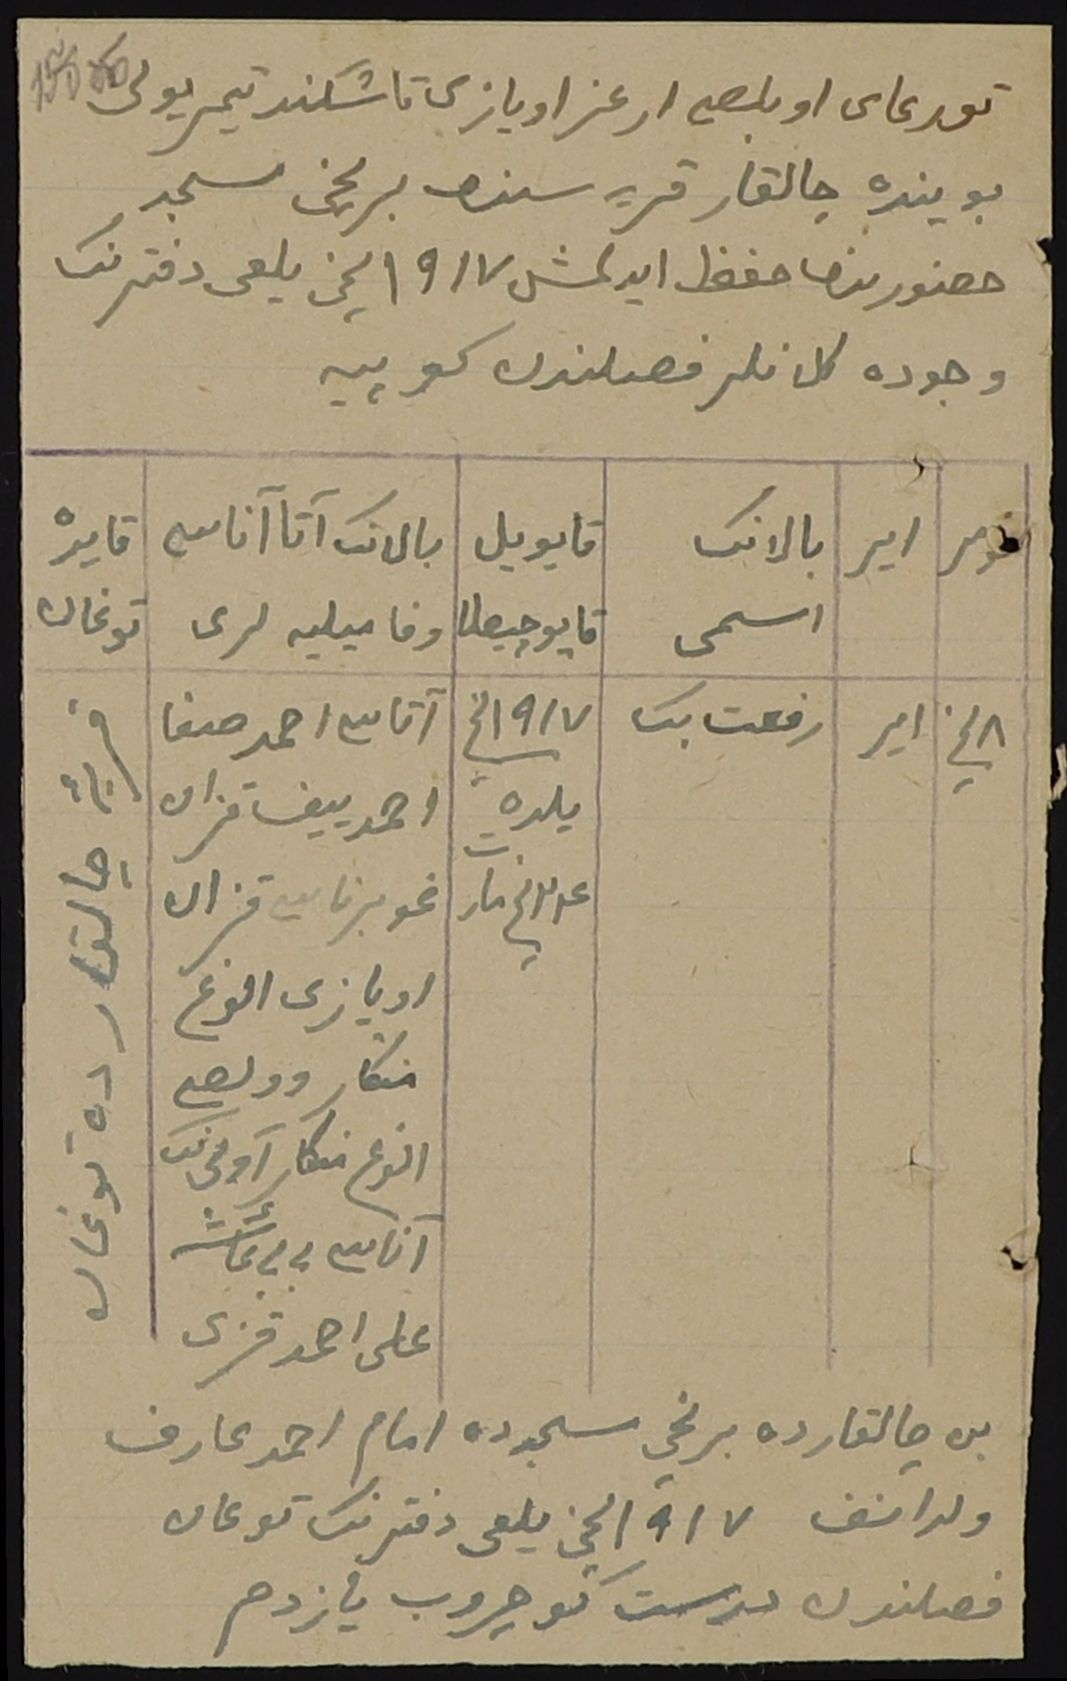 تورغای اوبلصی ارغز اویازی تاشکند تیمر یولی
بوینده چالقار قریه سنده برنچی مسجد
حضورنده حفظ ایدلمش ۱۹۱۷ نچی یلغی دفترنک
وجوده کلانلر فصلندن کوپیه
نومر
ایر
بالانک اسمی
قایو یل قایو چیصلا
بالانک آتا آناسی وفامیلیه لری
قایده توغان
۸ نچی
ایر
رفعت بک
۱۹۱۷ نچی
یلده
مارت
آتاسی احمد صفا
احمدییف قزان
غوبرناسی قزان
اویازی الوغ
منکار وولصی
الوغ منکار آولی نک
آناسی بی بی عائشه
علی احمد قزی
قریه چالقارده توغان
من چالقارده برنچی مسجدده امام احمد عارف
ولدانف ۱۹۱۷ نچی یلغی دفترنک توغان
فصلندن درست کوچروب یازدم